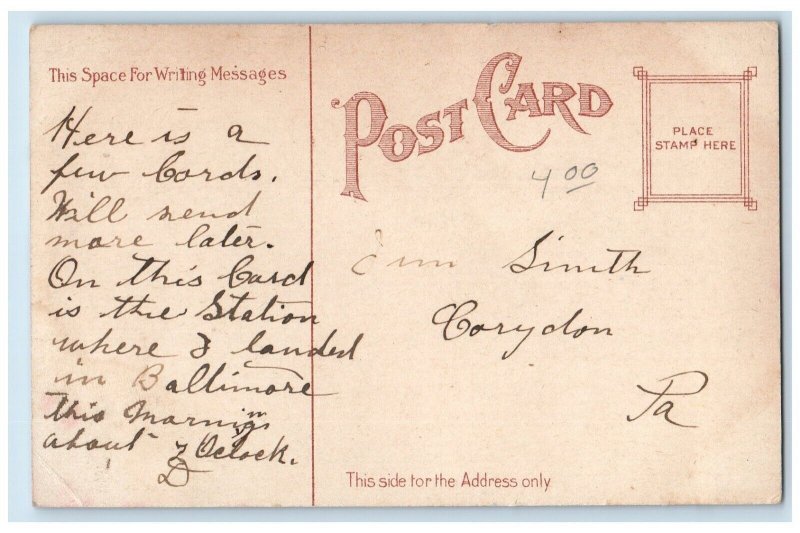 This Space For Writing Messages
Here is a
few Cards.
Will send
more later.
On this Card
is the Station
where I landed
in Baltimore
this Morning
about 7 Oclock.
D
POST CARD
4 00
PLACE
STAMP HERE
Smith
Corydon
Pa
This side for the Address only